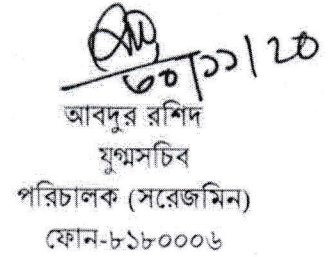 ৩০/১১/২০
আবদুর রশিদ
যুগ্মসচিব
পরিচালক (সরেজমিন)
ফোন-৮১৮০০০৬